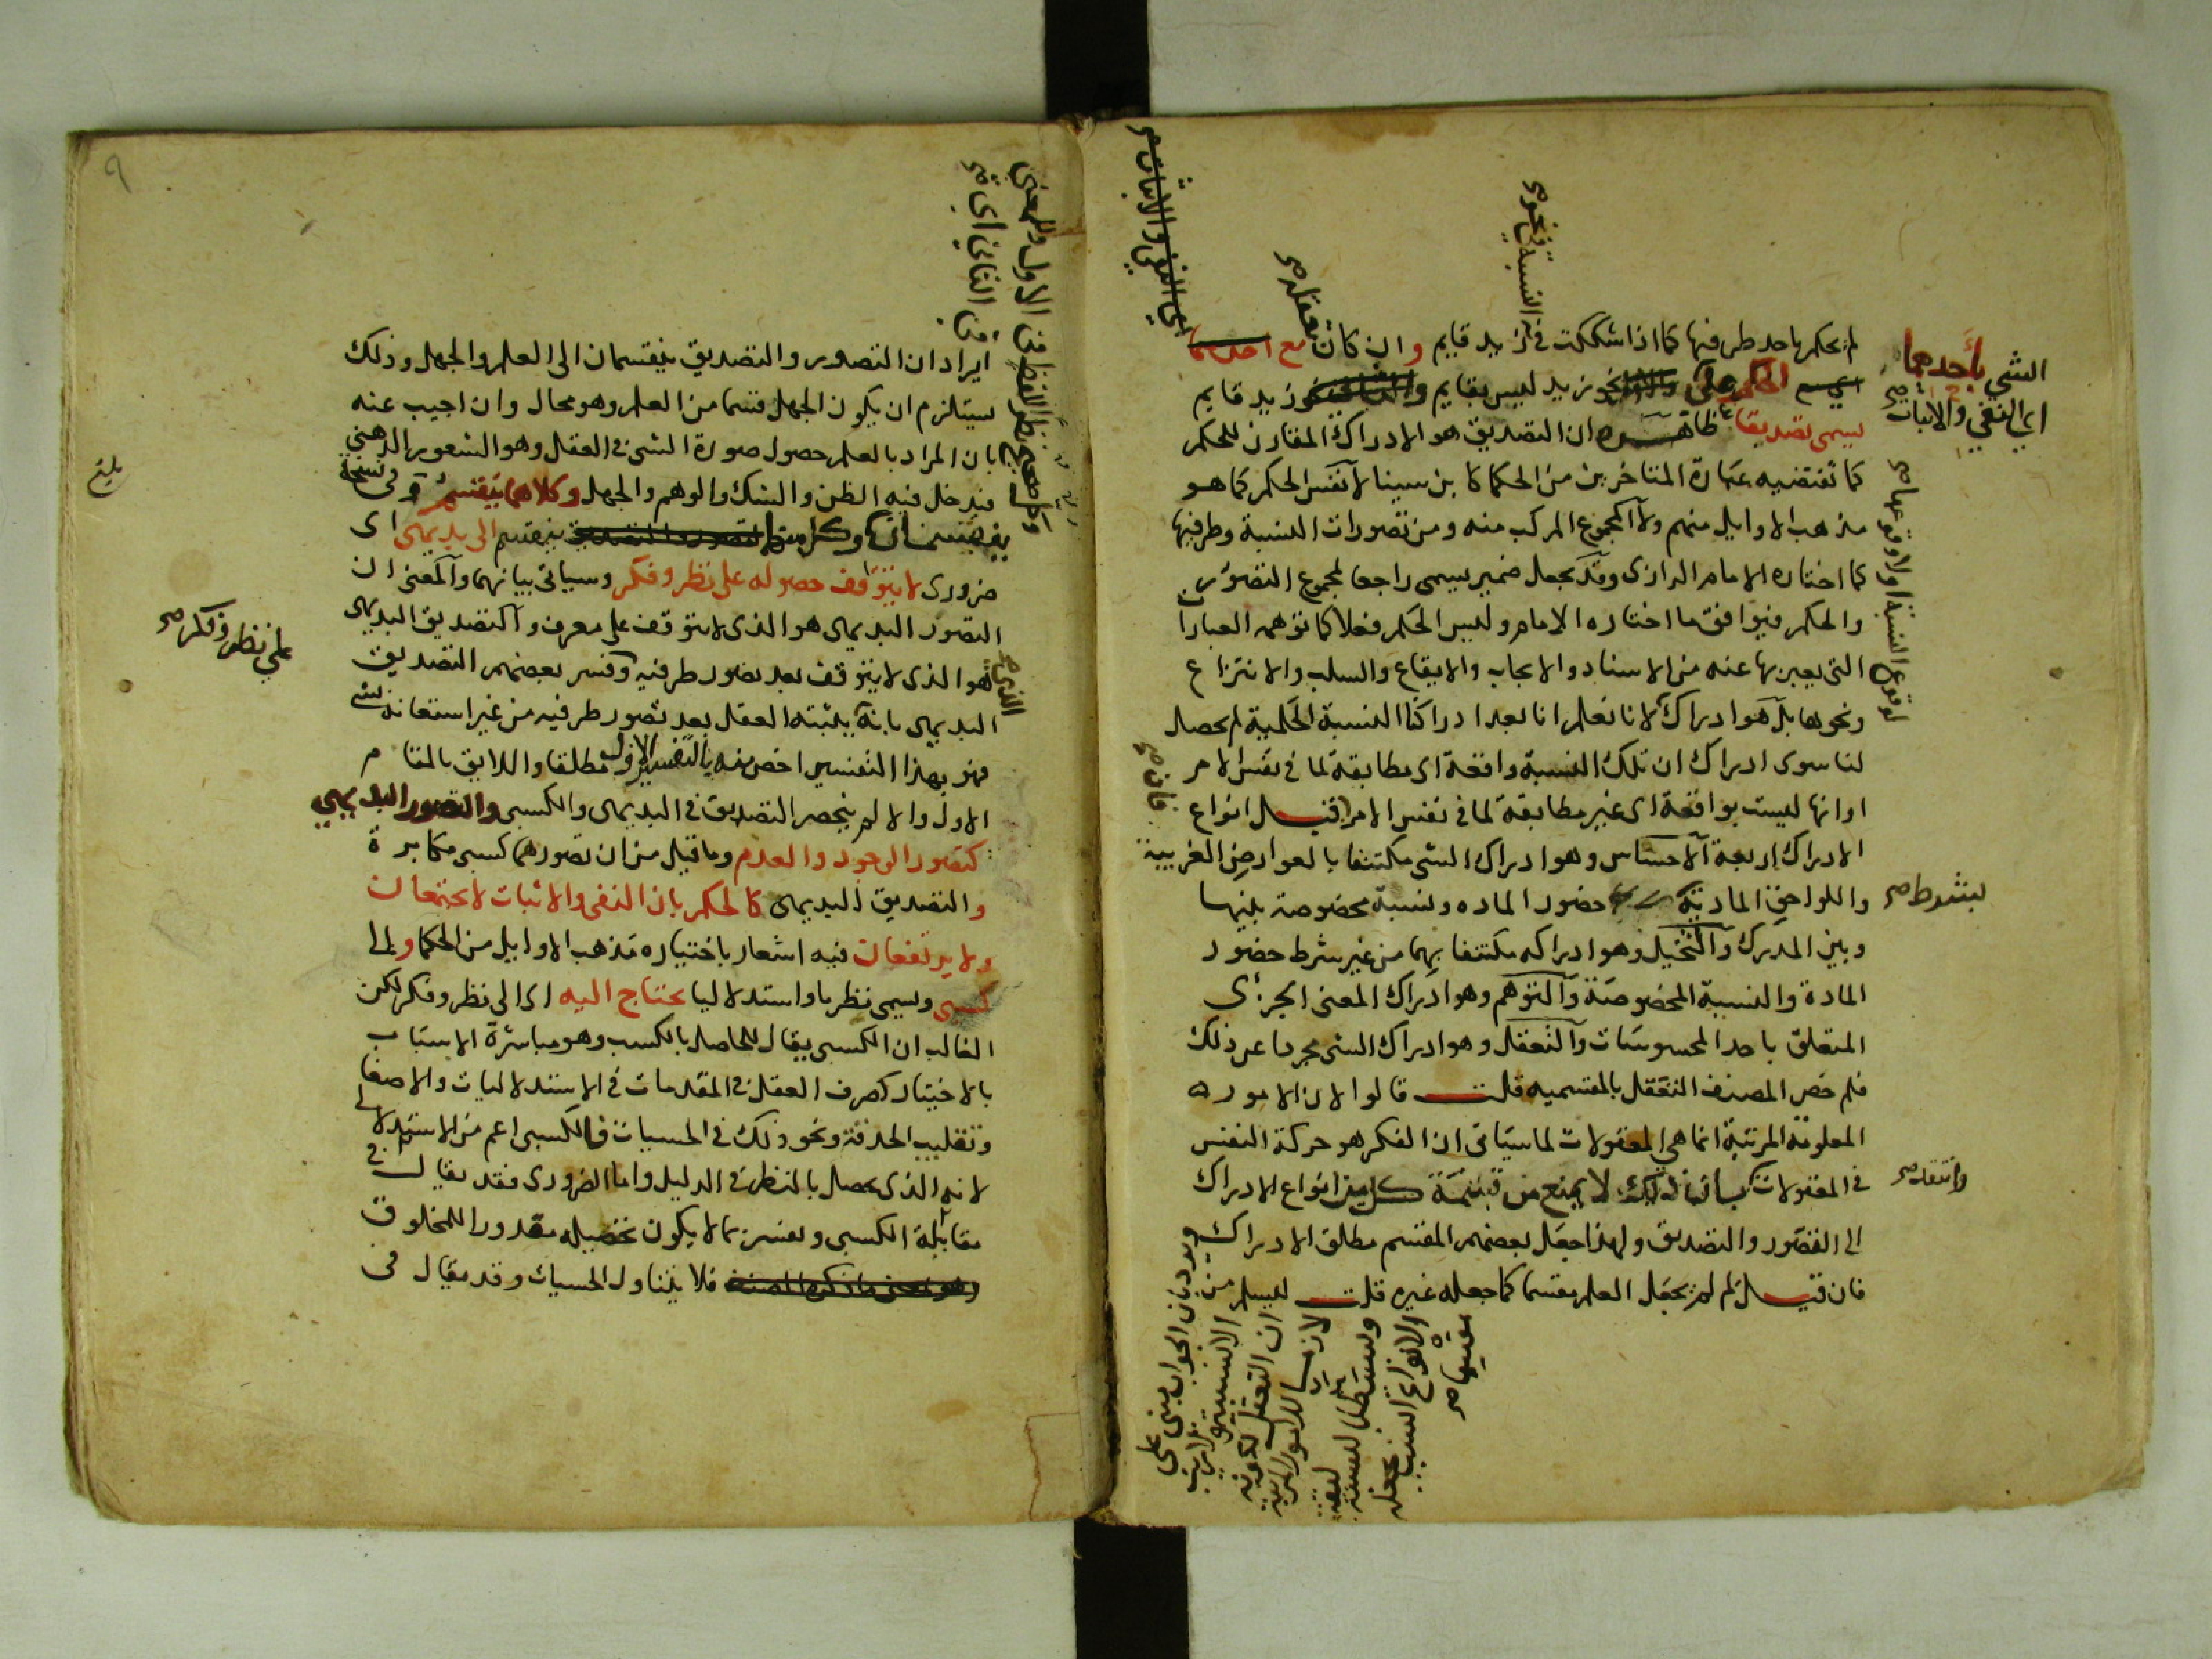 لم يحكم باحد طرفيها كما اذا شككت في ان زيد قايم وان كان تعقله مع احدهما
الحكم على نحو زيد ليس بقايم او نحو زيد قايم
يسمى تصديقا ظاهره ان التصديق هو الادراك المقارن للحكم
كما تقتضيه عبارة المتاخرين من الحكما كابن سينا لا نفس الحكم كما هو
مذهب الاوايل منهم ولا المجموع المركب منه ومن تصورات النسبة وطرفيها
كما اختاره الامام الرازى وقد يجعل ضمير يسمى راجعا لمجموع التصور
والحكم فيوافق ما اختاره الامام وليس الحكم فعلا كما توهمه العبارا
التى يعبر بها عنه من الاسناد والايجاب والايقاع والسلب والانتزاع
ونحوها بل هو ادراك لانا نعلم انا بعد ادراكنا النسبة الحكمية لم يحصل
لنا سوى ادراك ان تلك النسبة واقعة اى مطابقة لما في نفس الامر
اوانها ليست بواقعة اى غير مطابقة لما في نفس الامر فان قيل انواع
الادراك اربعة الاحساس وهو ادراك الشى مكتنفا بالعوارض الغريبة
واللواحق المادية بشرط حضور الماده ونسبة مخصوصة بينها
وبين المدرك والتخيل وهو ادراكه مكتنفا بهما من غير شرط حضور
المادة والنسبة المخصوصة والتوهم وهو ادراك المعنى الجزئى
المتعلق باحد المحسوسات والتعقل وهو ادراك الشى مجردا عن ذلك
فلم خص المصنف التعقل بالمقسميه قلت قالوا لان الامور
المعلومة المرتبة انما هي المعقولات لما سياتى ان الفكر هو حركة النفس
في المعقولات لا يمنع من قسمة كل من انواع الادراك
الى التصور والتصديق ولهذا جعل بعضهم المقسم مطلق الادراك
فان قيل لم لم يجعل العلم مقسما كما جعله غيره قلت ليسلم من
الشي بأحدهما
اي النفي والاثبات
بشرط صح
تعقله صح
فان صح
اي النفي والاثبات صح
لوقوع النسبة او لا وقوعها صح
ايراد ان التصور والتصديق ينقسمان الى العلم والجهل وذلك
يستلزم ان يكون الجهل قسما من العلم وهو محال وان اجيب عنه
بان المراد بالعلم حصول صورة الشى في العقل وهو الشعور الذهني
فيدخل فيه الظن والشك والوهم والجهل وكلاهما ينقسم وفى نسخة
ينقسمان وكل من التصور والتصديق ينقسم الى بديهى اى
ضرورى لا يتوقف حصوله على نظر وفكر وسياتى بيانهما والمعنى ان
التصور البديهى هو الذى لا يتوقف على معرف والتصديق البديهى
هو الذى لا يتوقف بعد تصور طرفيه وفسر بعضهم التصديق
البديهى بانه يثبته العقل بعد تصور طرفيه من غير استعانة بشى
فهو بهذا التفسير اخص منه بالتفسير الاول مطلقا واللايق بالمقام
الاول والا لم ينحصر التصديق في البديهى والكسبى والتصور البديهي
كتصور الوجود والعدم وما قيل من ان تصورهما كسبى مكابرة
والتصديق البديهى كالحكم بان النفى والاثبات لا يجتمعان
ولا يرتفعان فيه اشعار باختياره مذهب الاوايل من الحكما والى
كسبى ويسمى نظريا واستدلاليا يحتاج اليه اى الى نظر وفكر لكن
الغالب ان الكسبى يقال للحاصل بالكسب وهو مباشرة الاسباب
بالاختيار كصرف العقل في المقدمات في الاستدلاليات والاصغا
وتقليب الحدقة ونحو ذلك في الحسيات فالكسبى اعم من الاستدلالى
لانه الذى يحصل بالنظر في الدليل واما الضرورى فقد يقال في
مقابلة الكسبى ويفسر بما لا يكون تحصيله مقدورا للمخلوق
فلا يتناول الحسيات وقد يقال فى
على نظر وفكر صح
بلغ
٩